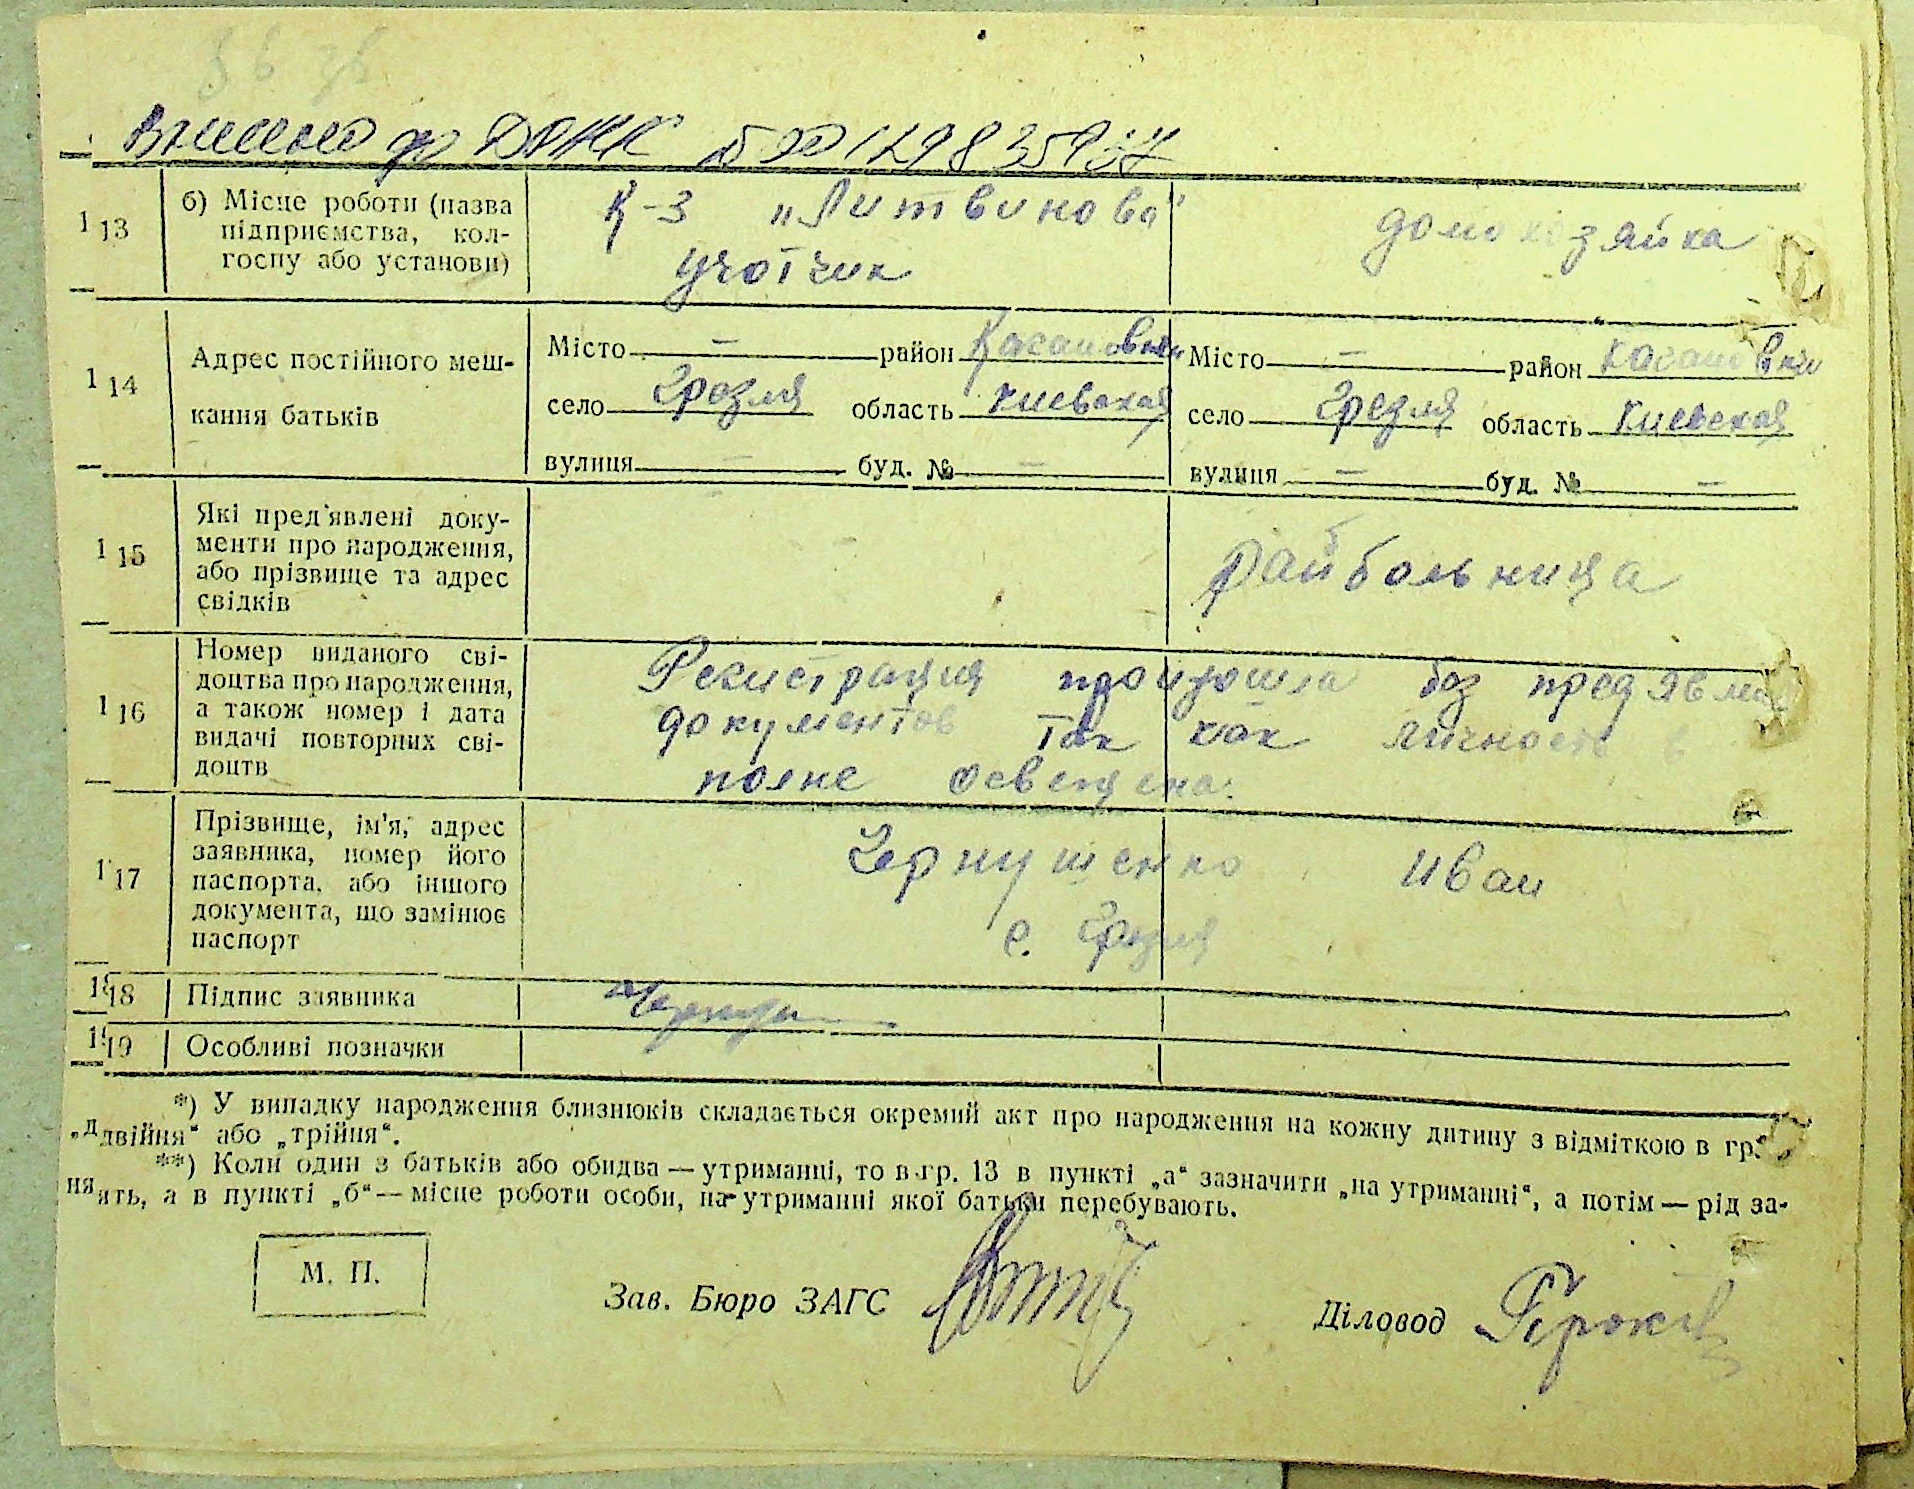 Внесено до ДРАЦС
1 13 б) Місце роботи (назва підприємства, колгоспу або установи)
К-з „Литвинова"
учотчик
домохозяйка
1 14 Адрес постійного мешкання батьків
Місто — район
село Грезля область Киевская
вулиця — буд. № —
Місто — район
село Грезля область Киевская
вулиця — буд. № —
1 15 Які пред'явлені документи про народження, або прізвище та адрес свідків
Райбольница
1 16 Номер виданого свідоцтва про народження, а також номер і дата видачі повторних свідоцтв
Регистрация произошла без
документов так как личность в
полне освещена.
1 17 Прізвище, ім'я, адрес заявника, номер його паспорта, або іншого документа, що замінює паспорт
Чернушенко Иван
с. Грезля
18 Підпис заявника
19 Особливі позначки
*) У випадку народження близнюків складається окремий акт про народження на кожну дитину з відміткою в гр.
„двійня“ або „трійня“.
**) Коли один з батьків або обидва — утриманці, то в гр. 13 в пункті „а“ зазначити „на утриманні“, а потім — рід за-
нять, а в пункті „б“ — місце роботи особи, на утриманні якої батьки перебувають.
М. П.
Зав. Бюро ЗАГС
Діловод